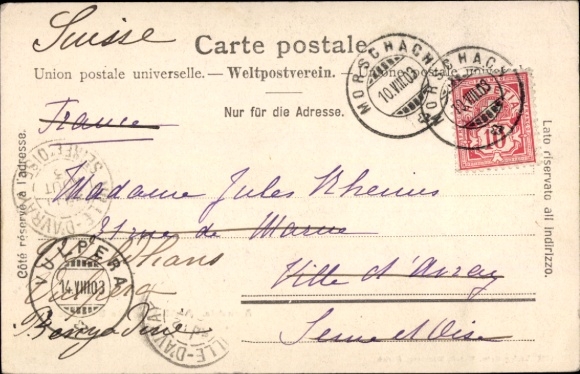 Suisse
Carte postale.
Union postale universelle. — Weltpostverein. — Unione postale universale
Nur für die Adresse.
MORSCHACH
10.VIII.03
MORSCHACH
10.VIII.03
10
France
Madame Jules Rheims
rue de Marne
Ville d'Avray
Seine et Oise
VULPERA
14.VIII03
VILLE-D'AVRAY
SEINE-ET-OISE
VILLE-D'AVRAY
Côté réservé à l'adresse.
Lato riservato all indirizzo.